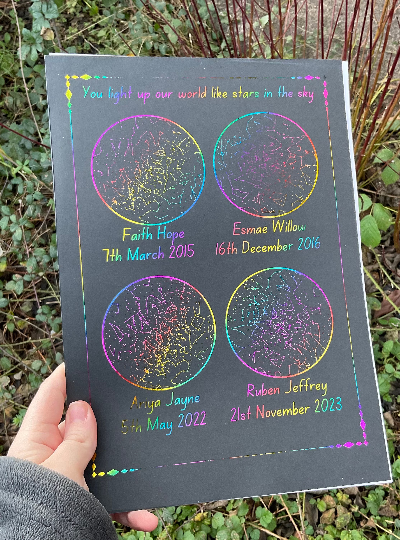 You light up our world like stars in the sky
Faith Hope
7th March 2015
Esmae Willow
16th December 2016
Anya Jayne
May 2022
Ruben Jeffrey
21st November 2023